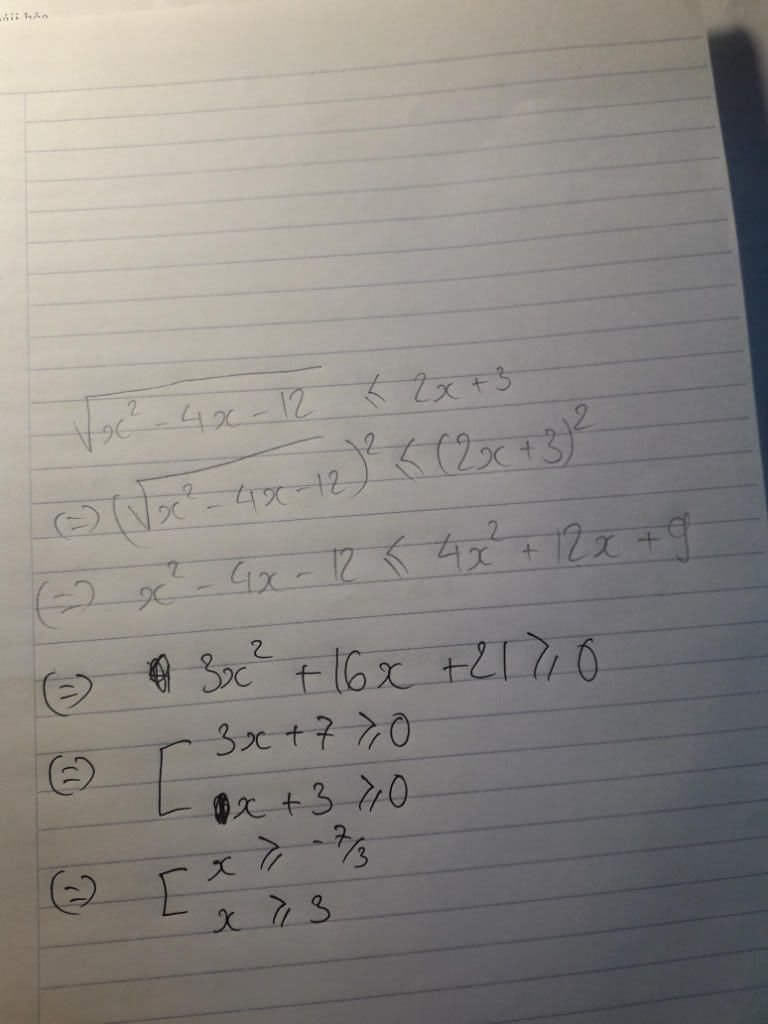 √(x² - 4x - 12) ⩽ 2x + 3
(=) (√(x² - 4x - 12))² ⩽ (2x + 3)²
(=) x² - 4x - 12 ⩽ 4x² + 12x + 9
(=) 3x² + 16x + 21 ⩾ 0
(=) [ 3x + 7 ⩾ 0
x + 3 ⩾ 0
(=) [ x ⩾ -7/3
x ⩾ 3